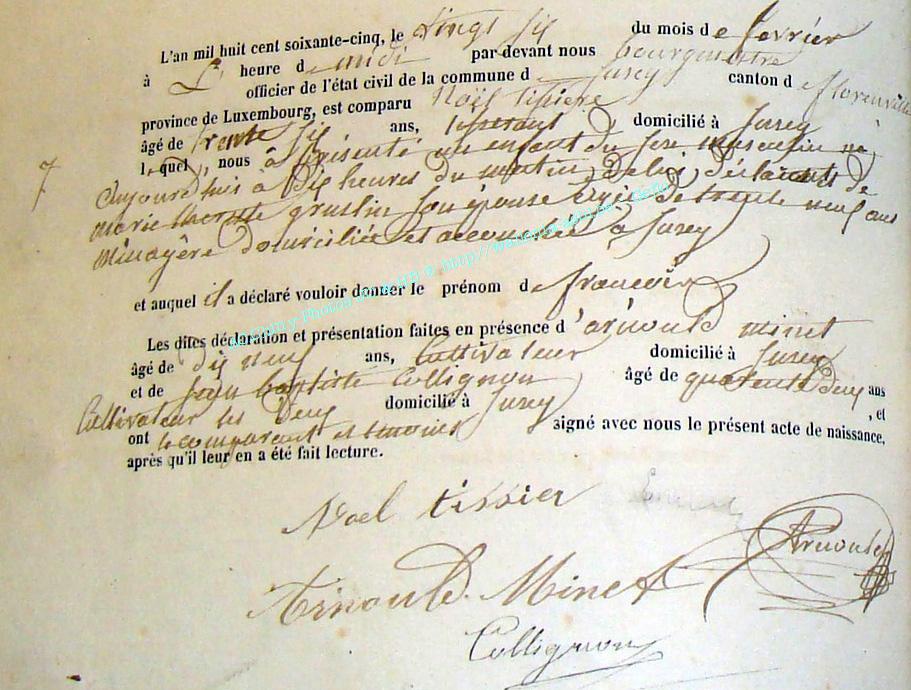 L'an mil huit cent soixante-cinq, le vingt six du mois de fevrier
à L' heure de midi par devant nous bourgmestre
officier de l'état civil de la commune d Jusey canton de florenville
province de Luxembourg, est comparu Noël tissière
âgé de trente six ans, tisserant domicilié à Jusey
lequel, nous à présenté un enfant du sexe masculin né
7 aujourdhuis à dix heures du matin, de lui déclarant et de
marie grustin son épouse agée de trente neuf ans
ménagère domiciliée et accouchée à Jusey
et auquel il a déclaré vouloir donner le prénom de francois
Les dites déclaration et présentation faites en présence d'arnould minet
âgé de dix neuf ans, Cultivateur domicilié à Jusey
et de jean baptiste Collignon âgé de quarante deux ans
Cultivateur les deux domicilié à Jusey , et
ont le comparant et temoins signé avec nous le présent acte de naissance,
après qu'il leur en a été fait lecture.
Noel tissier
Arnould
Arnould Minet
Collignon